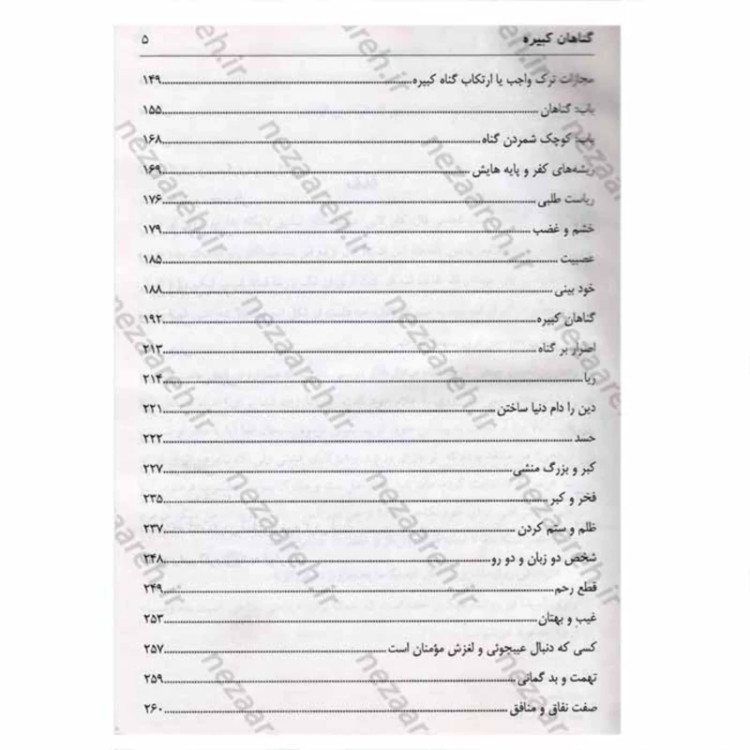 گناهان کبیره ۵
مجازات ترک واجب یا ارتکاب گناه کبیره ۱۴۹
باب: گناهان ۱۵۵
باب: کوچک شمردن گناه ۱۶۸
ریشه‌های کفر و پایه هایش ۱۶۹
ریاست طلبی ۱۷۶
خشم و غضب ۱۷۹
عصبیت ۱۸۵
خود بینی ۱۸۸
گناهان کبیره ۱۹۲
اصرار بر گناه ۲۱۳
ریا ۲۱۴
دین را دام دنیا ساختن ۲۲۱
حسد ۲۲۲
کبر و بزرگ منشی ۲۲۷
فخر و کبر ۲۳۵
ظلم و ستم کردن ۲۳۷
شخص دو زبان و دو رو ۲۴۸
قطع رحم ۲۴۹
غیب و بهتان ۲۵۳
کسی که دنبال عیبجوئی و لغزش مؤمنان است ۲۵۷
تهمت و بد گمانی ۲۵۹
صفت نفاق و منافق ۲۶۰
nezaareh.ir